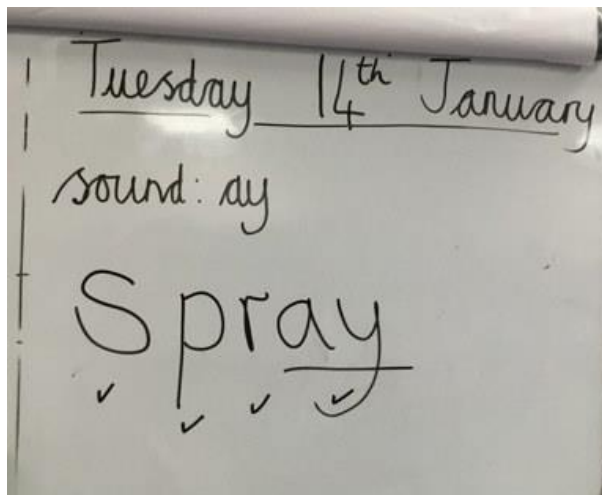 Tuesday 14th January
sound: ay
Spray